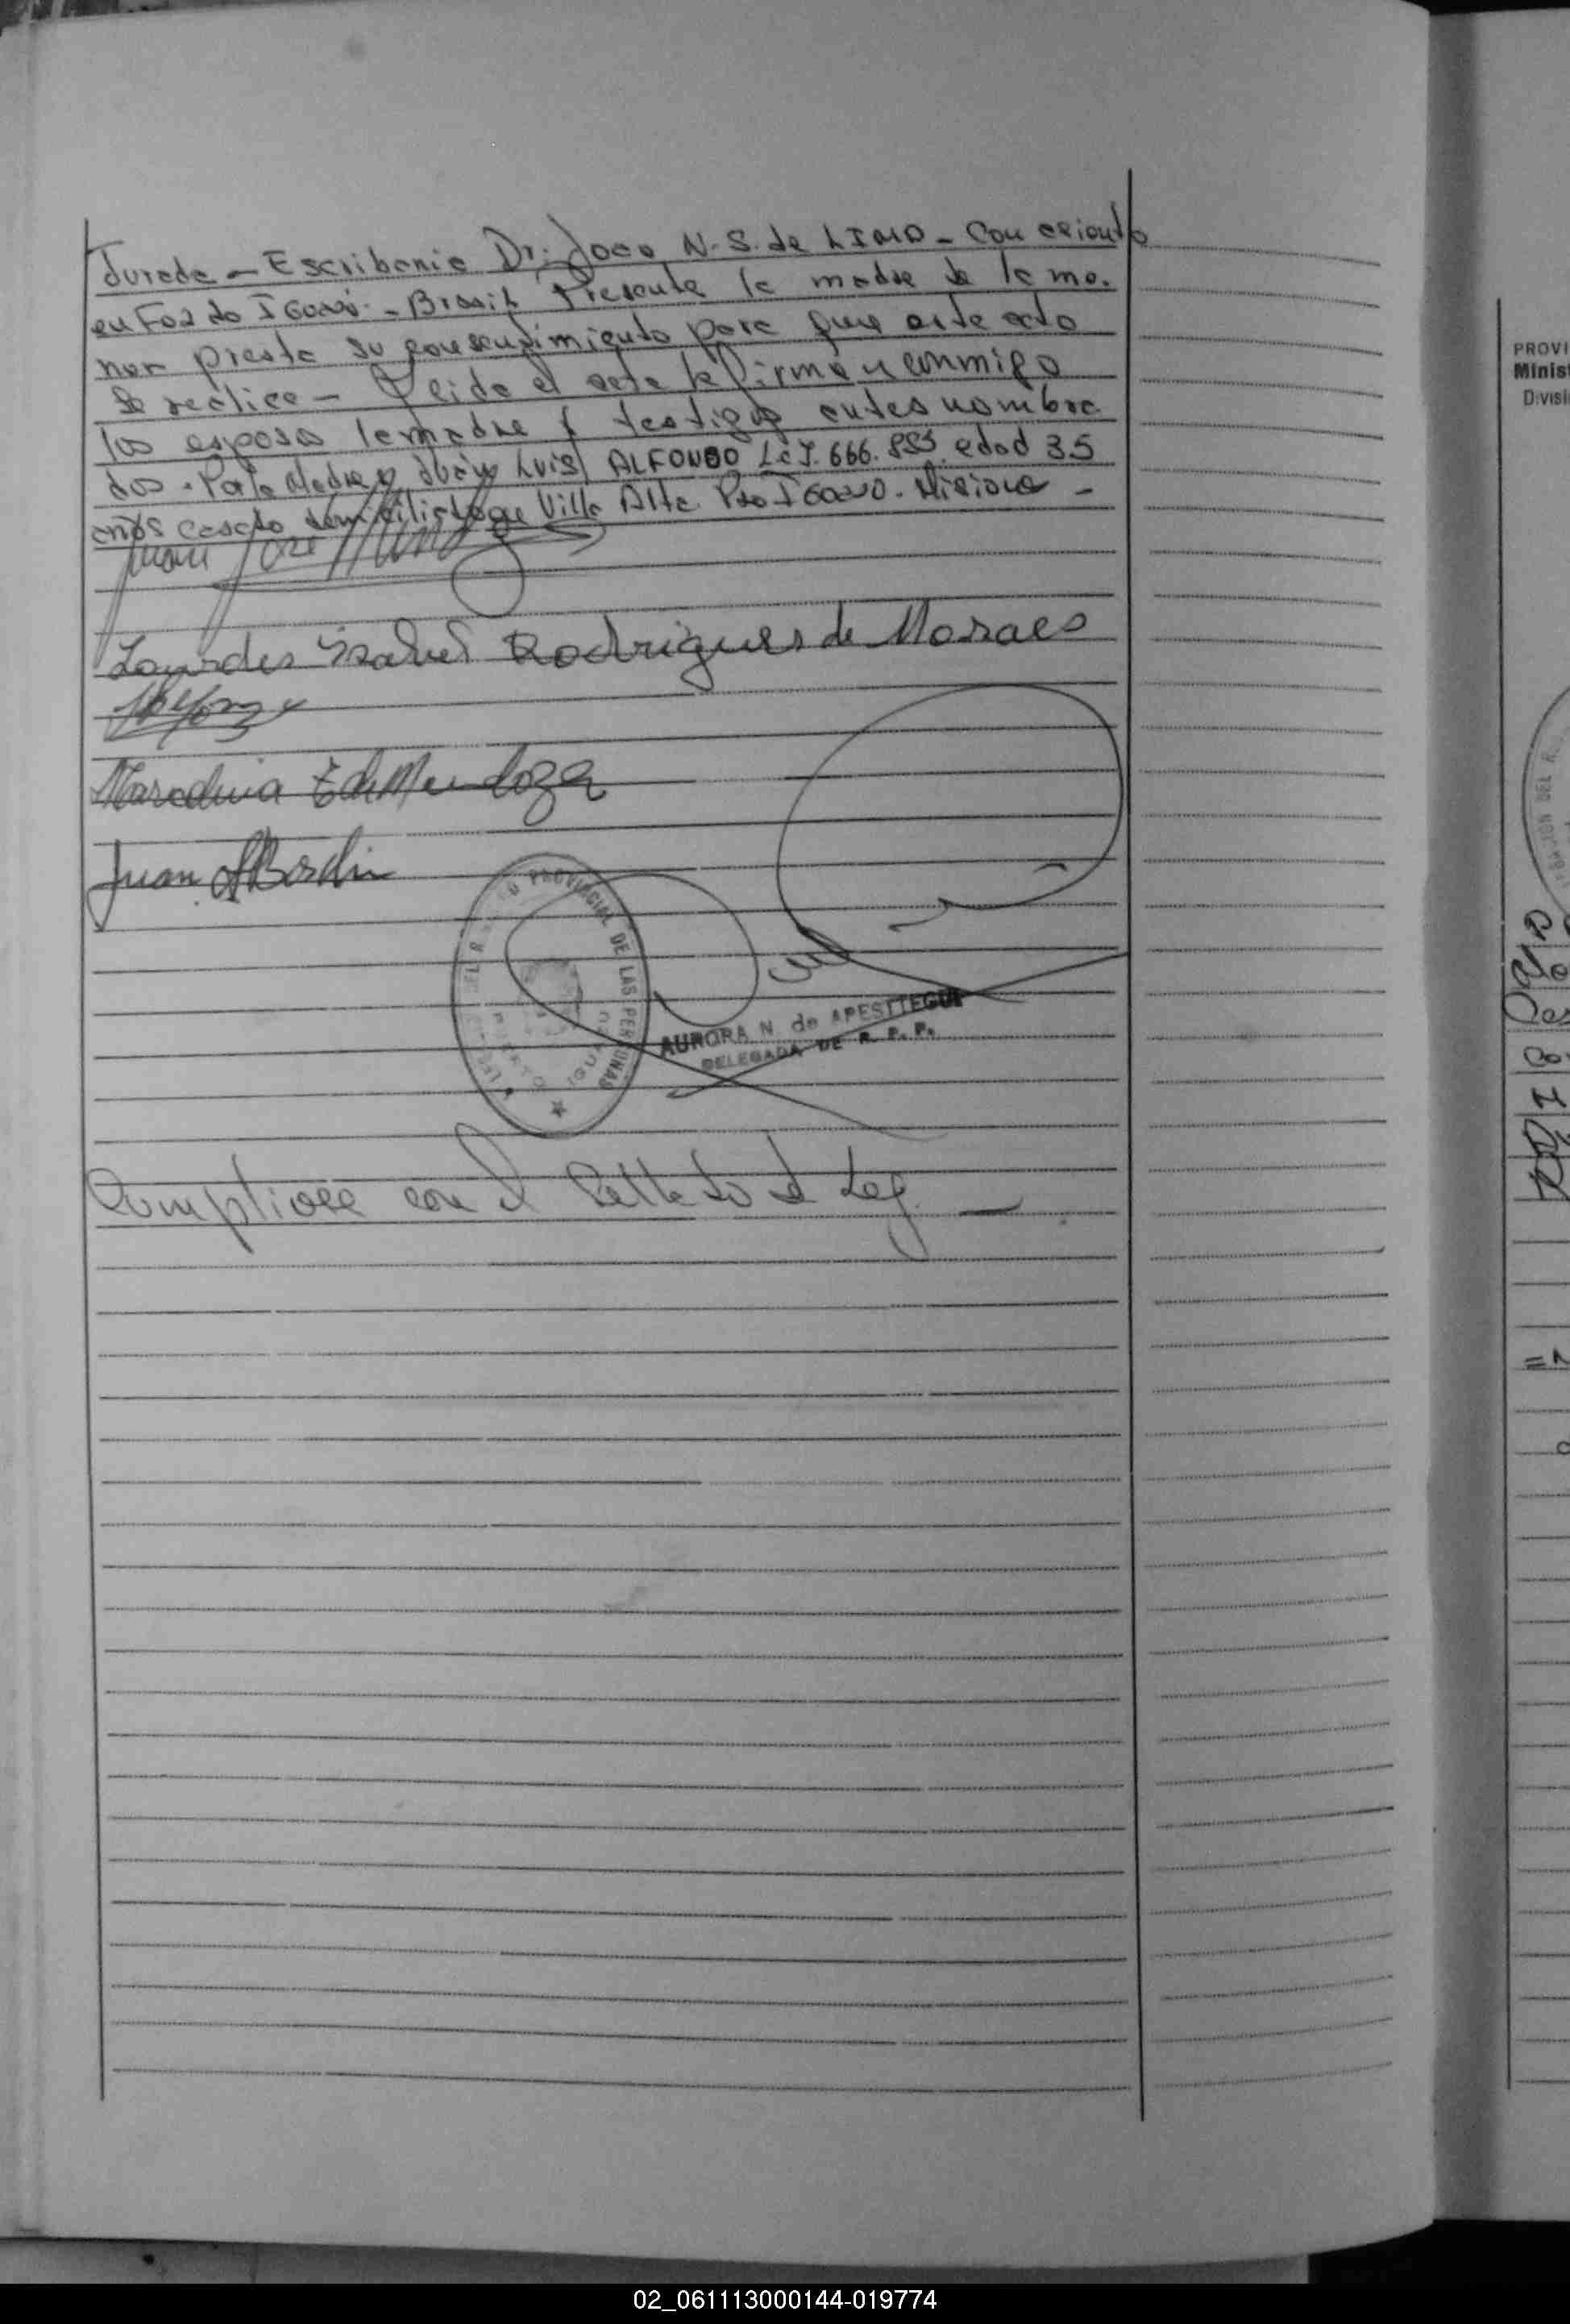 Jurada - Escribania Dr: Joao N. S. de LIMA - Con asiento
en Foz do IGUAZÚ - Brasil Presente la madre de la me.
nor presta su consentimiento para que este acto
se realice - Leida el acta la firman conmigo
los esposos la madre y testigos antes nombra
dos - Por la Madre y Juan LUIS ALFONSO edad 35
años casado domiciliado que Villa Alta Pto IGUAZU. Misiones -
Juan Jose
Lourdes Izabel Rodrigues de Moraes
Marcelina E de Mendoza
Juan Bordin
PROVINCIAL DE LAS PERSONAS
AURORA N. de APESTTEGUI
DELEGADA DE R. P. P.
Cumpliose con el Sellado de Ley. -
PROVI
Minis
Divisi
02_061113000144-019774